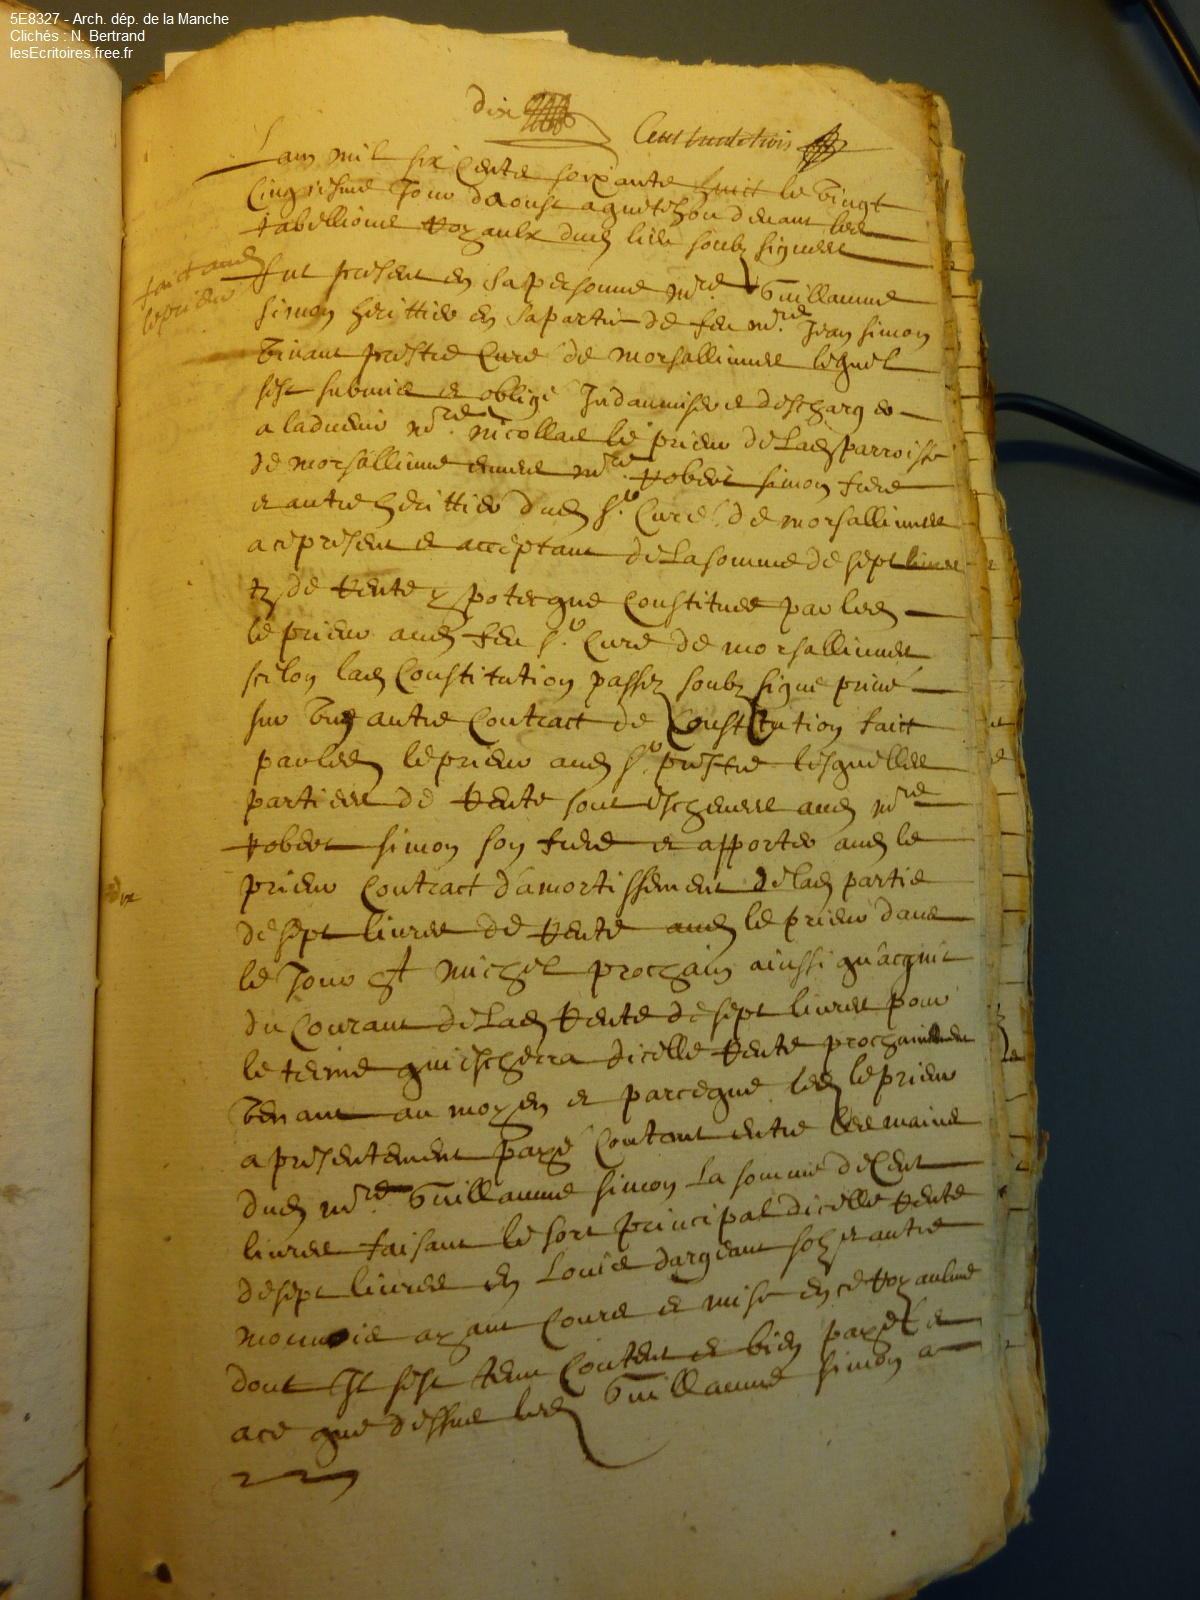 5E8327 - Arch. dép. de la Manche
Clichés : N. Bertrand
lesEcritoires.free.fr
dix
Cent trente trois
Lan mil six cents soixante huict le vingt
cinqiesme jour daoust a quetehou devant les
tabellions royaulx dud lieu soubz signers
faict aud
leprieur
fut present en sa personne mre Guillaume
simon herittier en sa partie de feu mre Jean simon
vivant prestre Curé de morsallinnes lequel
sest submis et obligé Indamniser et descharger
a ladvenir mre nicollas le prieur de lad parroisse
de morsallinne envers mre Robert simon frere
et autre herittier dud sr Curé de morsallinnes
a ce present et acceptant de la somme de sept livres
tz de rente ypoteque Constituee par led
le prieur aud feu sr Curé de morsallinnes
selon lad Constitution passez soubz signe privé
sur ung autre Contract de Constitution faict
par led leprieur aud sr prestre lesquelles
parties de rente sont escheues aud mre
Robert simon son frere et apporter aud le
prieur Contract damortissement de lad partie
de sept livres de rente aud le prieur dans
le jour st michel prochain ainssi quacquit
du Courant de lad rente de sept livres pour
le terme qui eschera dicelle rente prochainement
venant au moyen et parceque led leprieur
a presentement payé Contant entre les mains
dud mre Guillaume simon la somme de Cent
livres faisant le sort principal dicelle rente
de sept livres en Louis dargeant solz et autre
monnoie ayant Cours et mise en ce royaulme
dont Il sest tenu Contant et bien payé et
a ce que dessus led Guillaume simon a